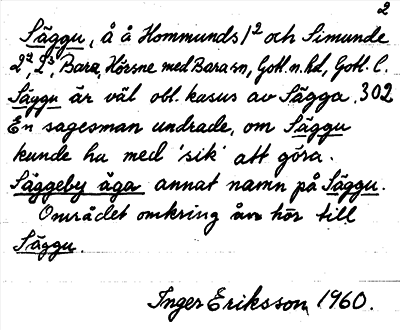 2
Säggu, å å Hommunds 1² och Simunde
2², 2³, Bara, Hörsne med Bara sn, Gotl. n. hd, Gotl. l.
Säggu är väl obl. kasus av Sägga. 302
En sagesman undrade, om Säggu
kunde ha med 'sik' att göra.
Säggeby åga annat namn på Säggu.
Området omkring åm hör till
Säggu.
Inger Eriksson 1960.